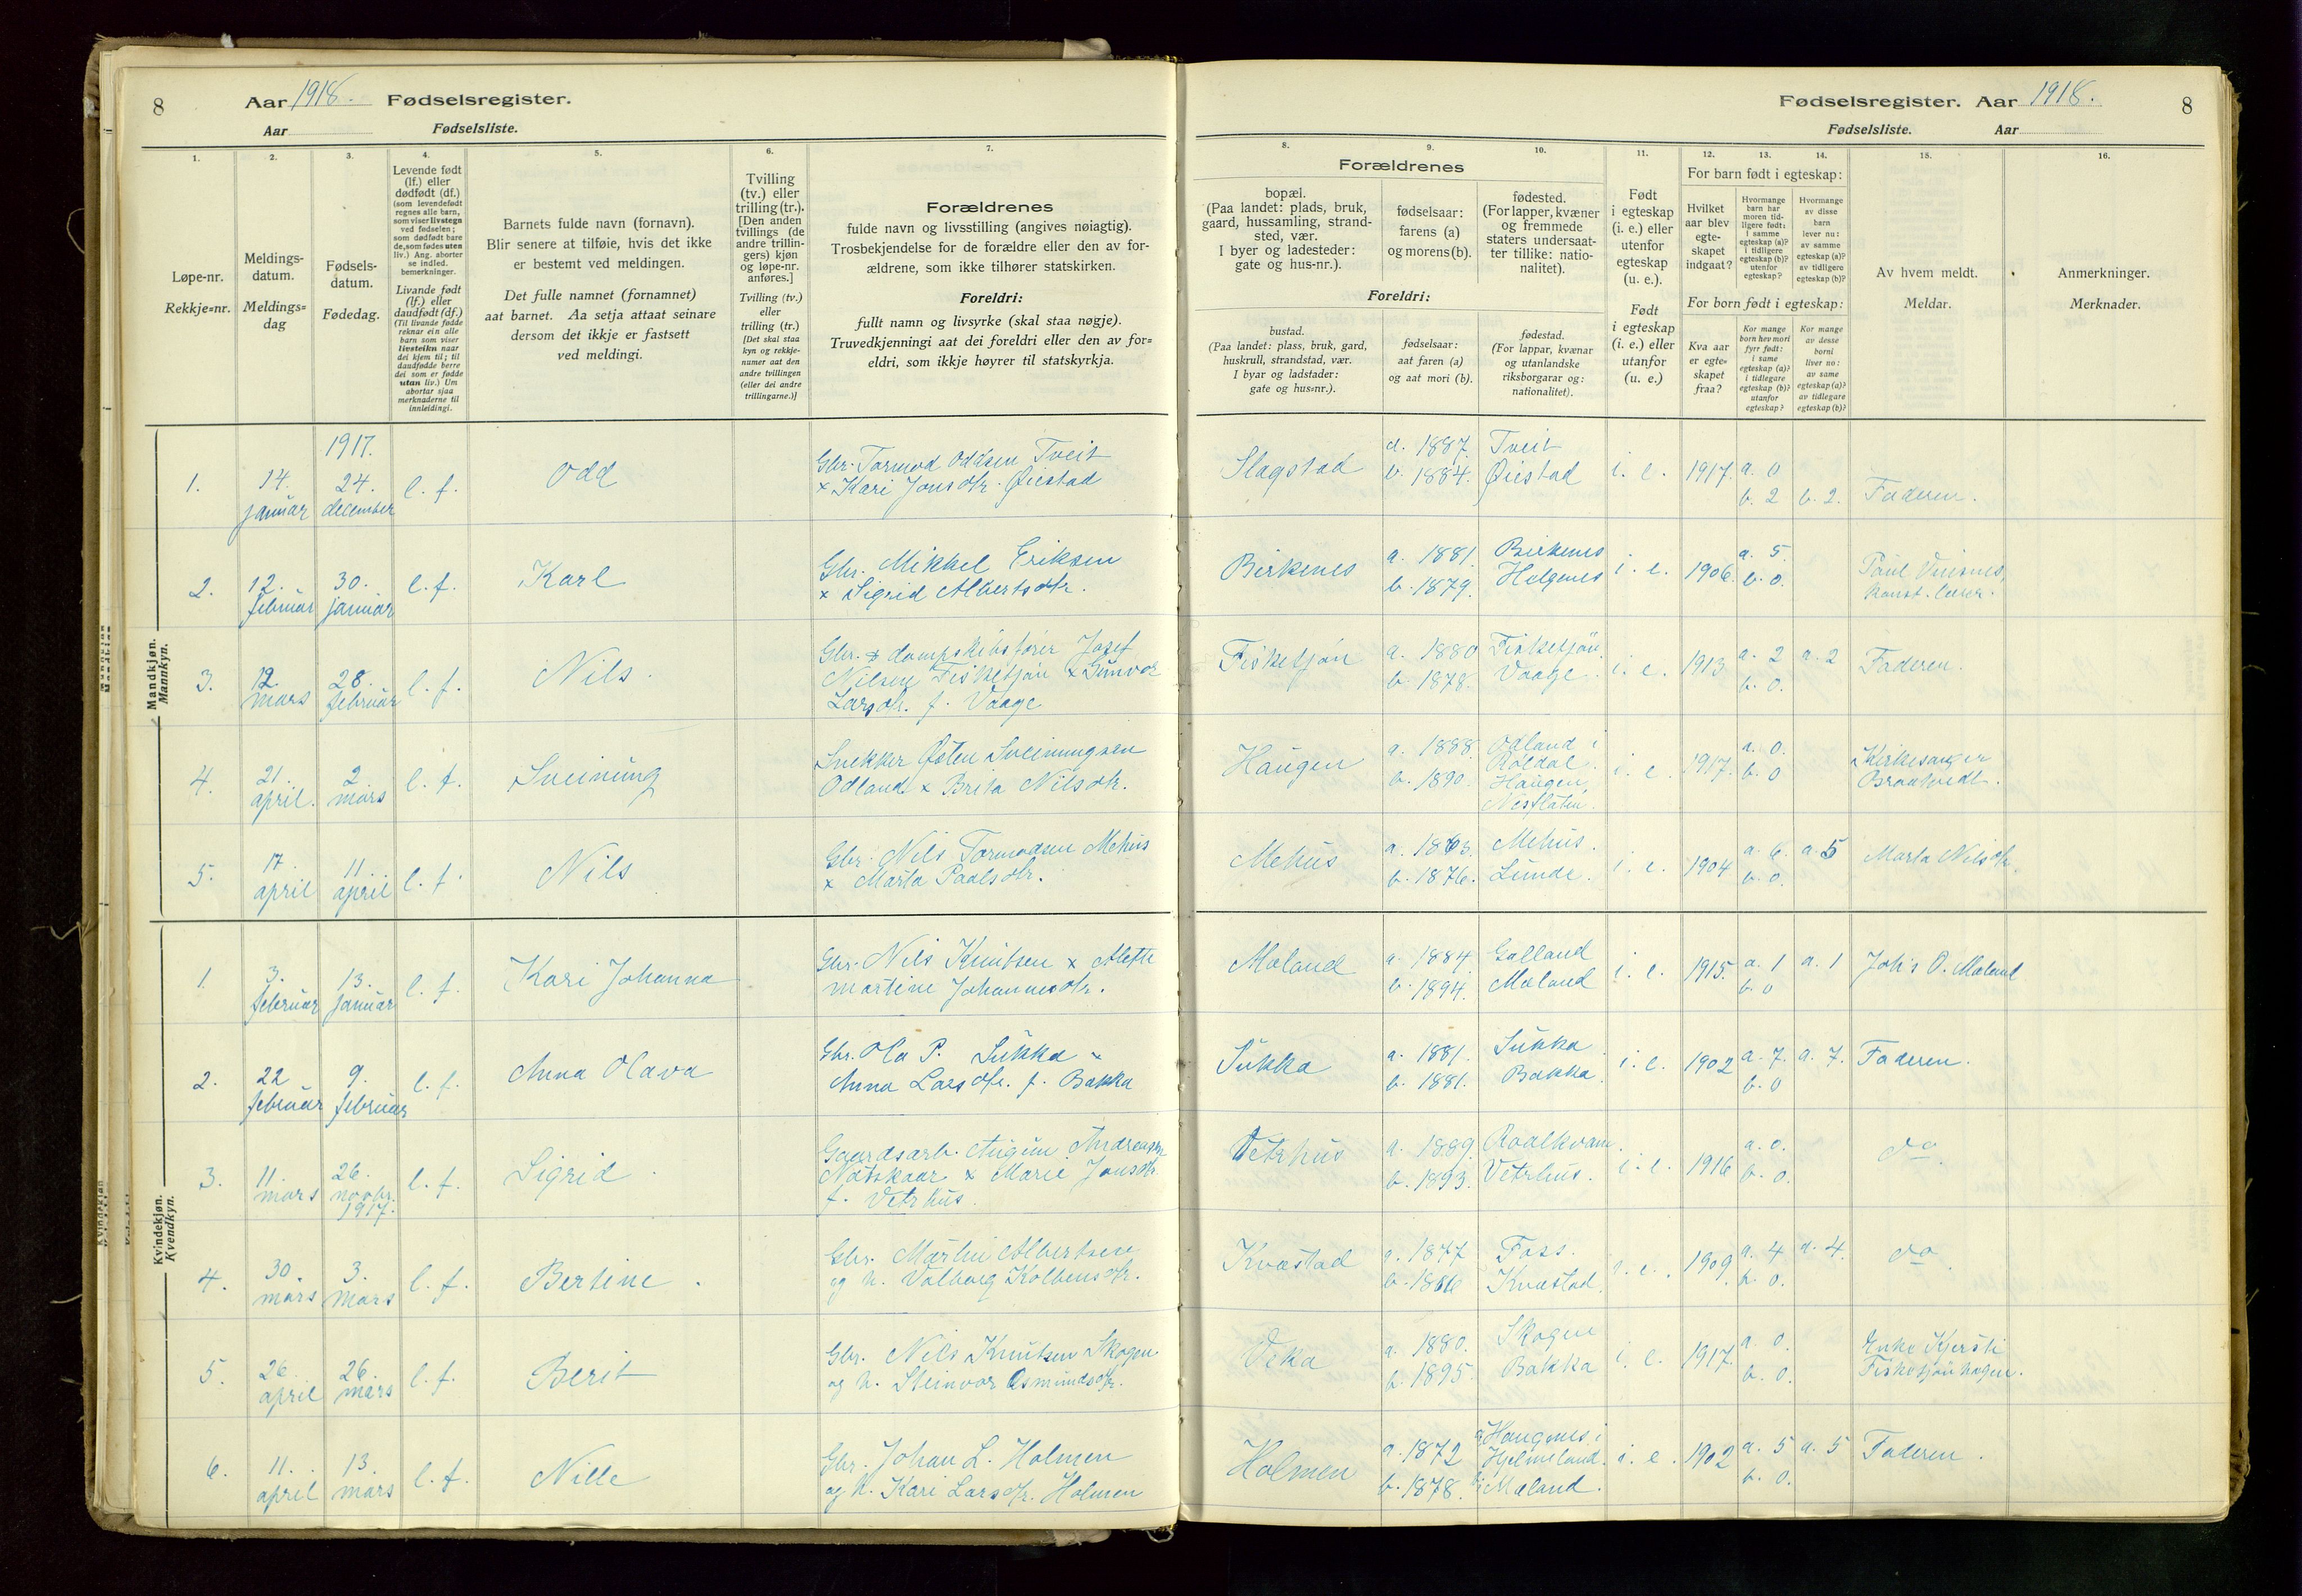 8
Aar 1918. Fødselsregister.
Aar Fødselsliste.
1.
2.
3.
4.
5.
6.
7.
Løpe-nr.
Rekkje=nr.
Meldings-
datum.
Meldings=
dag
Fødsels-
datum.
Fødedag.
Levende født
(lf.) eller
dødfødt (df.)
(som levendefødt
regnes alle barn,
som viser livstegn
ved fødselen;
som dødfødt bare
de, som fødes uten
liv.) Ang. aborter
se indled.
bemerkninger.
Livande født
(lf.) eller
daudfødt (df.)
(Til livande fødde
reknar ein alle
barn som viser
livsteikn naar
dei kjem til; til
daudfødde berre
dei som er fødde
utan liv.) Um
abortar sjaa
merknaderne til
innleidingi.
Barnets fulde navn (fornavn).
Blir senere at tilføie, hvis det ikke
er bestemt ved meldingen.
Det fulle namnet (fornamnet)
aat barnet. Aa setja attaat seinare
dersom det ikkje er fastsett
ved meldingi.
Tvilling
(tv.) eller
trilling (tr.).
[Den anden
tvillings (de
andre trillin-
gers) kjøn
og løpe-nr.
anføres.]
Tvilling (tv.)
eller
trilling (tr.)
[Det skal staa
kyn og rekkje-
numer aat den
andre tvillingen
(eller dei andre
trillingarne.)]
Forældrenes
fulde navn og livsstilling (angives nøiagtig).
Trosbekjendelse for de forældre eller den av for-
ældrene, som ikke tilhører statskirken.
Foreldri:
fullt namn og livsyrke (skal staa nøgje).
Truvedkjenningi aat dei foreldri eller den av for=
eldri, som ikkje høyrer til statskyrkja.
Mandkjøn.
Mannkyn.
1917.
1. 14. januar 24. december l. f. Odd
Gbr. Tormod Oddsen Tveit
x Kari Jonsdtr. Øiestad
2. 12. februar 30. januar l. f. Karl
Gbr. Mikkel Eriksen
x Sigrid Albertsdtr.
3. 12. mars 28. februar l. f. Nils.
Gbr. & dampskibsfører Josef
Nilsen Fisketjøn x Gunvor
Larsdtr. f. Vaage
4. 21. april. 2. mars l. f. Sveinung
Snekker Østen Sveinungsen
Odland x Brita Nilsdtr.
5. 17. april 11. april l. f. Nils
Gbr. Nils Tormodsen Mehus
x Marta Paalsdtr.
Kvindekjøn.
Kvendkyn.
1. 3. februar 13. januar l. f. Kari Johanna
Gbr. Nils Knutsen x Alette
Martine Johannesdtr.
2. 22 februar 9. februar l. f. Anna Olava
Gbr. Ola P. Sukka x
Anna Larsdtr. f. Bakka
3. 11. mars 26. novbr. 1917. l. f. Sigrid
Gaardsarb. Augun Andreassen
Natskaar x Marie Jonsdtr.
f. Vetrhus.
4. 30. mars 3. mars l. f. Bertine.
Gbr. Martin Albertsen
og h. Valborg Kolbensdtr.
5. 26. april 26. mars l. f. Berit
Gbr. Nils Knutsen Skogen
og h. Steinvor Osmundsdtr.
6. 11. april 13. mars l. f. Nille
Gbr. Johan L. Holmen
og h. Kari Larsdtr. Holmen
Fødselsregister. Aar 1918.
8
Fødselsliste. Aar
8.
9.
10.
11.
12.
13.
14.
15.
16.
Forældrenes
bopæl.
(Paa landet: plads, bruk,
gaard, hussamling, strand-
sted, vær.
I byer og ladesteder:
gate og hus-nr.).
fødselsaar:
farens (a)
og morens (b).
fødested.
(For lapper, kvæner
og fremmede
staters undersaat-
ter tillike: natio-
nalitet).
Foreldri:
bustad.
(Paa landet: plass, bruk, gard,
huskrull, strandstad, vær.
I byar og ladstader:
gate og hus=nr.).
fødselsaar:
aat faren (a)
og aat mori (b).
fødestad.
(For lappar, kvænar
og utanlandske
riksborgarar og:
nationalitet).
Født
i egteskap
(i. e.) eller
utenfor
egteskap
(u. e.).
Født
i egteskap
(i. e.) eller
utanfor
(u. e.)
For barn født i egteskap:
Hvilket
aar blev
egte-
skapet
indgaat?
Hvormange
barn har
moren tid-
ligere født:
i samme
egteskap (a)?
i tidligere
egteskap (b)?
utenfor
egteskap?
Hvormange
av disse
barn
lever nu:
av samme
egteskap (a)?
av tidligere
egteskap (b)?
For born født i egteskap:
Kva aar
er egte=
skapet
fraa?
Kor mange
born hev mori
fyrr født:
i same
egteskap (a)?
i tidlegare
egteskap (b)?
utanfor
egteskap?
Kor mange
av desse
borni
liver no:
av same
egteskap (a)?
av tidlegare
egteskap (b)?
Av hvem meldt.
Meldar.
Anmerkninger.
Merknader.
Slagstad a. 1887. Tveit
b. 1884. Øiestad i. e. 1917. a. 0
b. 2 b. 2. Faderen.
Birkenes a. 1881. Birkenes
b. 1879. Helgenes i. e. 1906. a. 5.
b. 0. Paul
konst. lærer.
Fisketjøn a. 1880 Fisketjøn.
b. 1878. Vaage. i. e. 1913 a. 2 a. 2
b. 0. Faderen.
Haugen a. 1888. Odland i
Røldal.
b. 1890. Haugen,
Nesflaten. i. e. 1917. a. 0.
b. 0 Kirkesanger
Braatvedt.
Mehus a. 1863. Mehus.
b. 1876. Lunde. i. e. 1904 a. 6. a. 5
b. 0. Marta Nilsdtr.
Moland a. 1884 Galland
b. 1894. Moland i. e. 1915. a. 1 a. 1
b. 0 Johs O. Moland
Sukka a. 1881. Sukka
b. 1881. Bakka. i. e. 1902 a. 7. a. 7.
b. 0 Faderen.
Vetrhus a. 1889. Roalkvam.
b. 1893. Vetrhus. i. e. 1916 a. 0.
b. 0. do.
Kvæstad a. 1877 Foss.
b. 1866 Kvæstad. i. e. 1909. a. 4 a. 4.
b. 0. do.
Veka a. 1880. Skogen
b. 1895. Bakka i. e. 1917. a. 0.
b. 0. Enke Kjersti
Fisketjønhagen.
Holmen a. 1872 a. Haugnes i
Hjelmeland.
b. 1878. b. Mæland. i. e. 1902 a. 5 a. 5
b. 0. Faderen.